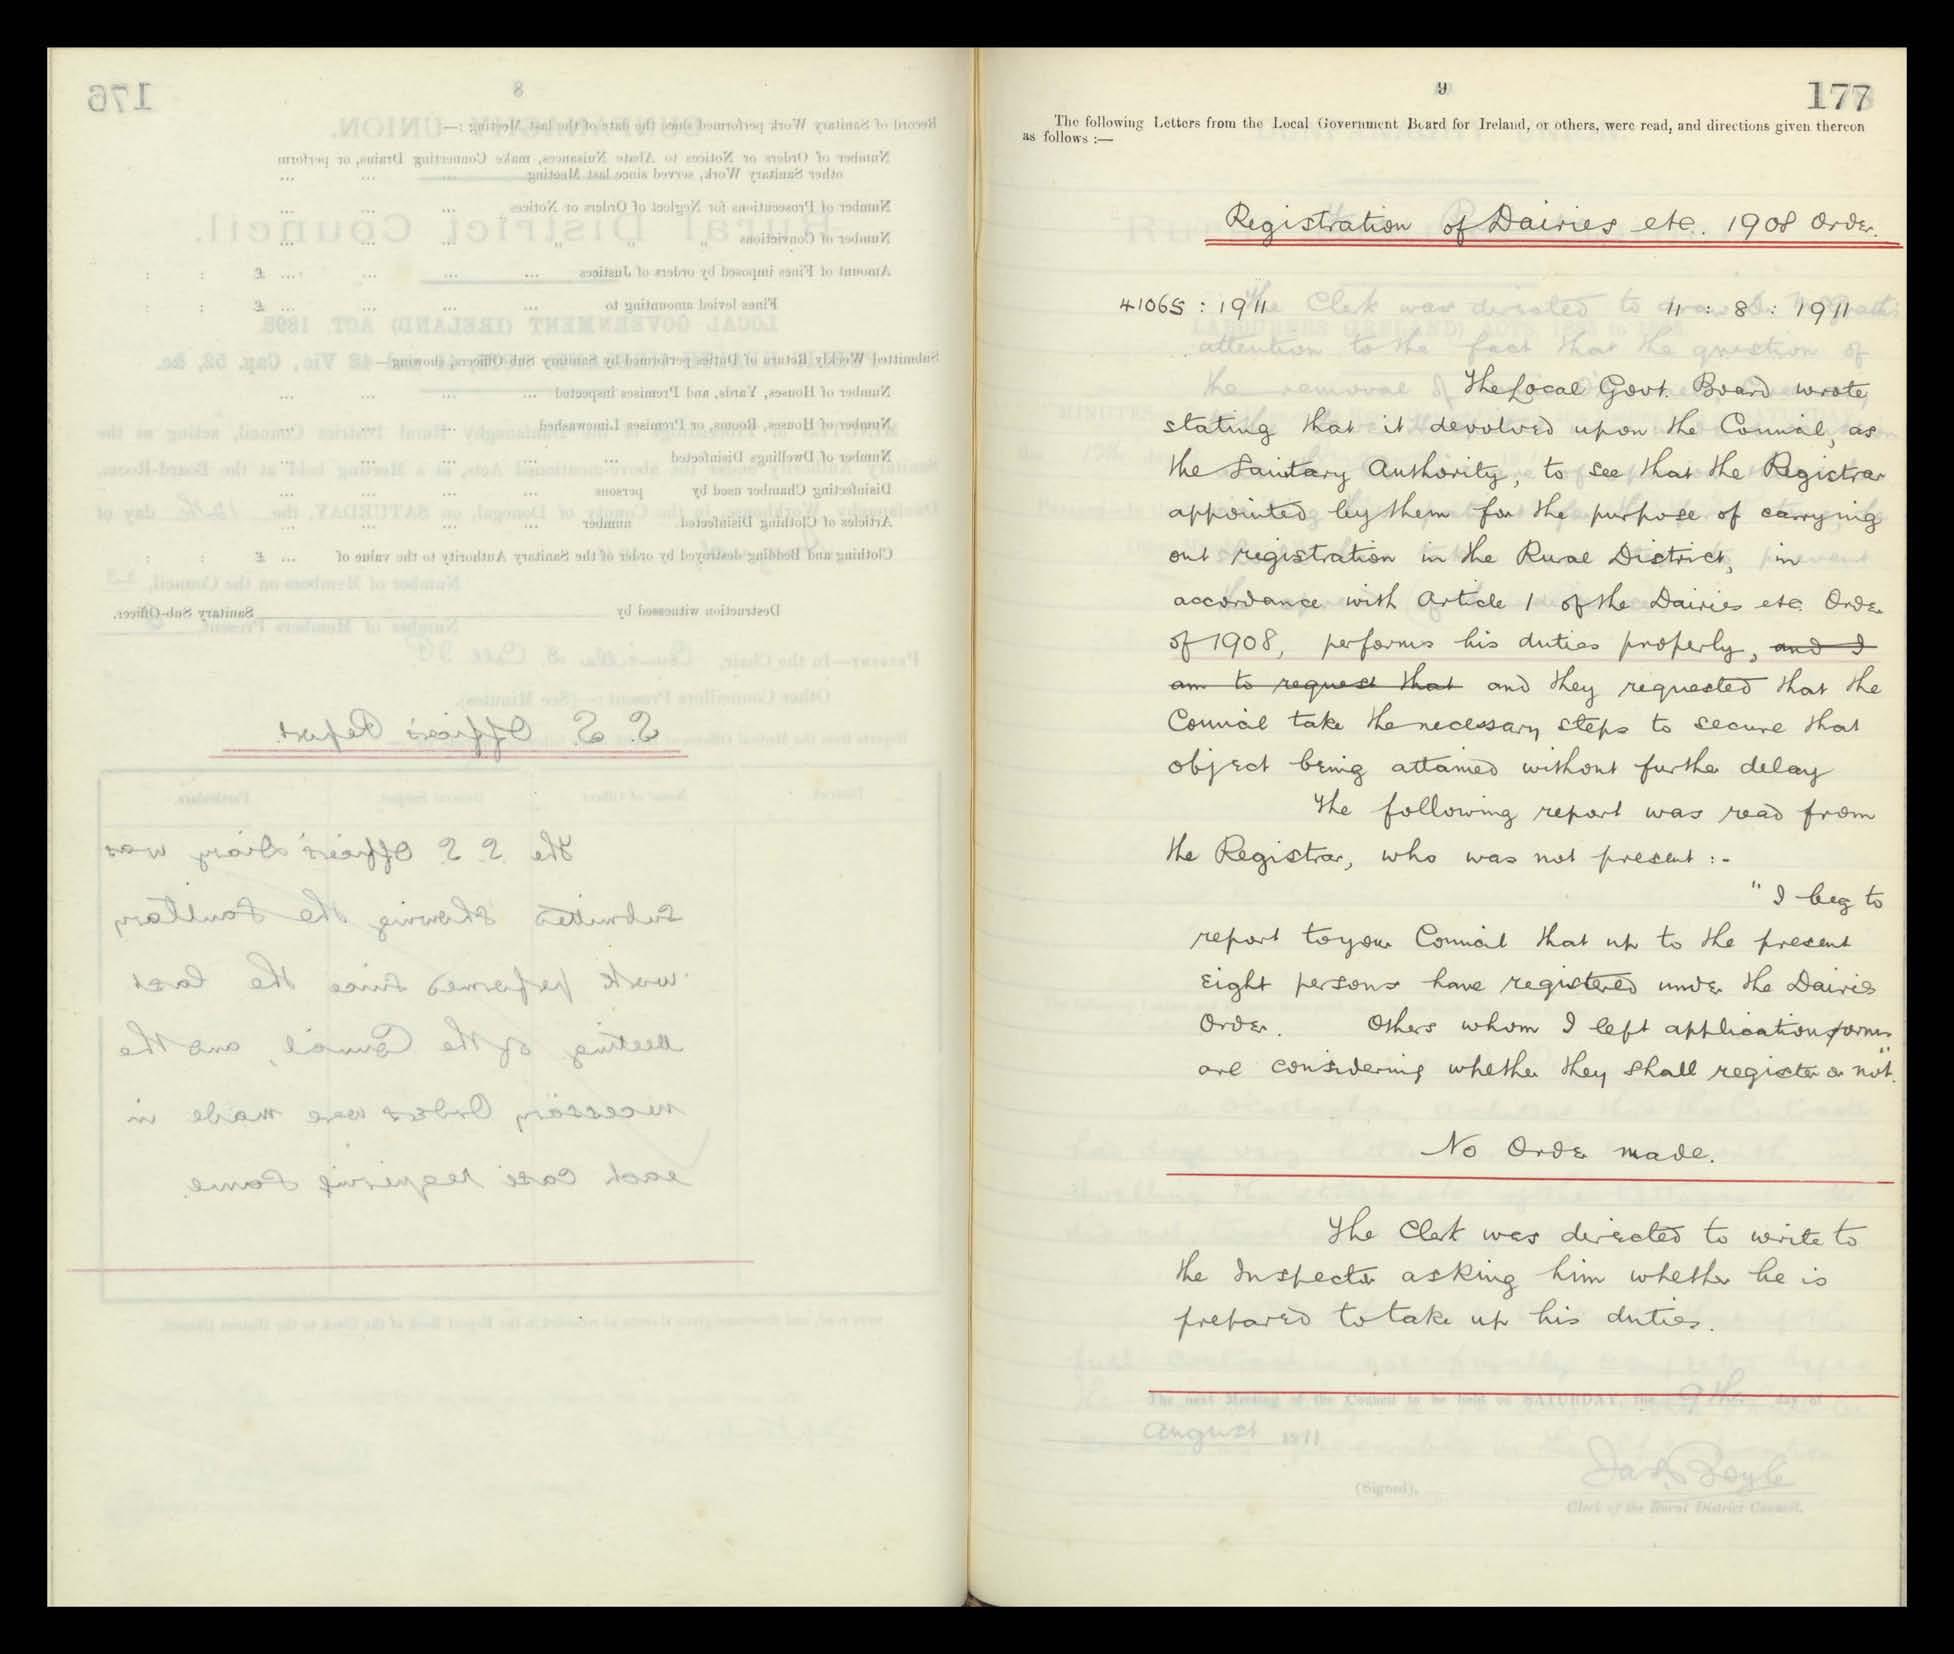 176
8
Record of Sanitary Work performed since the date of the last Meeting :—
Number of Orders or Notices to Abate Nuisances, make Connecting Drains, or perform
other Sanitary Work, served since last Meeting
Number of Prosecutions for Neglect of Orders or Notices
Number of Convictions " " "
Amount of Fines imposed by orders of Justices £ : :
Fines levied amounting to £ : :
Submitted Weekly Return of Duties performed by Sanitary Sub-Officers, showing—
Number of Houses, Yards, and Premises inspected
Number of Houses, Rooms, or Premises Limewashed
Number of Dwellings Disinfected
Disinfecting Chamber used by persons
Articles of Clothing Disinfected number
Clothing and Bedding destroyed by order of the Sanitary Authority to the value of £ : :
Destruction witnessed by Sanitary Sub-Officer.
S. S. Officer's Report.
The S. S. Officer's Diary was
submitted showing the Sanitary
work performed since the last
meeting of the Council, and the
necessary Orders were made in
each case requiring same.
9
177
The following Letters from the Local Government Board for Ireland, or others, were read, and directions given thereon
as follows :—
Registration of Dairies etc. 1908 Order.
41065 : 1911 11 : 8 : 1911
The Local Govt. Board wrote
stating that it devolved upon the Council, as
the Sanitary Authority, to see that the Registrar
appointed by them for the purpose of carrying
out registration in the Rural District, in
accordance with Article 1 of the Dairies etc. Order
of 1908, performs his duties properly, and I
am to request that and they requested that the
Council take the necessary steps to secure that
object being attained without further delay
The following report was read from
the Registrar, who was not present :-
"I beg to
report to your Council that up to the present
eight persons have registered under the Dairies
Order. Others whom I left application forms
are considering whether they shall register or not."
No Order made.
The Clerk was directed to write to
the Inspector asking him whether he is
prepared to take up his duties.